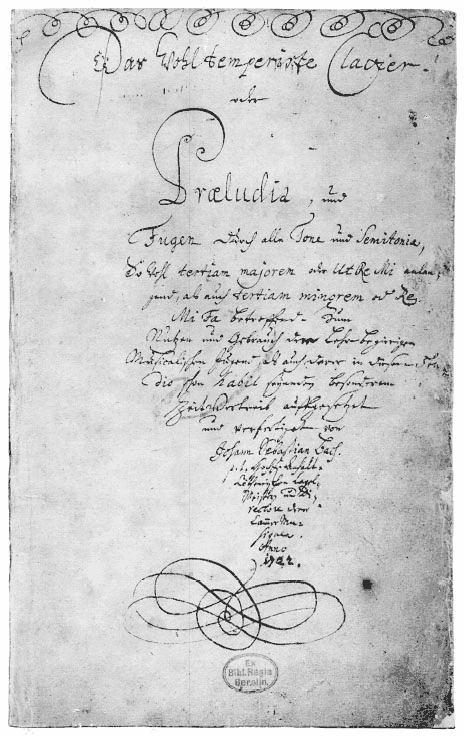 Das Wohltemperirte Clavier.
oder
Præludia, und
Fugen durch alle Tone und Semitonia,
So wohl tertiam majorem oder Ut Re Mi anlan-
gend, als auch tertiam minorem oder Re
Mi Fa betreffend. Zum
Nutzen und Gebrauch der Lehr-begierigen
Musicalischen Jugend, als auch derer in diesem stu-
dio schon habil seyenden besonderem
Zeitvertreib auffgesetzet
und verfertiget von
Johann Sebastian Bach.
p. t. Hochfürstlich Anhalt-
Cöthenischen Capel-
Meistern und Di-
rectore derer
Cammer Mu-
siquen.
Anno
1722.
Ex
Bibl. Regia
Berolin.